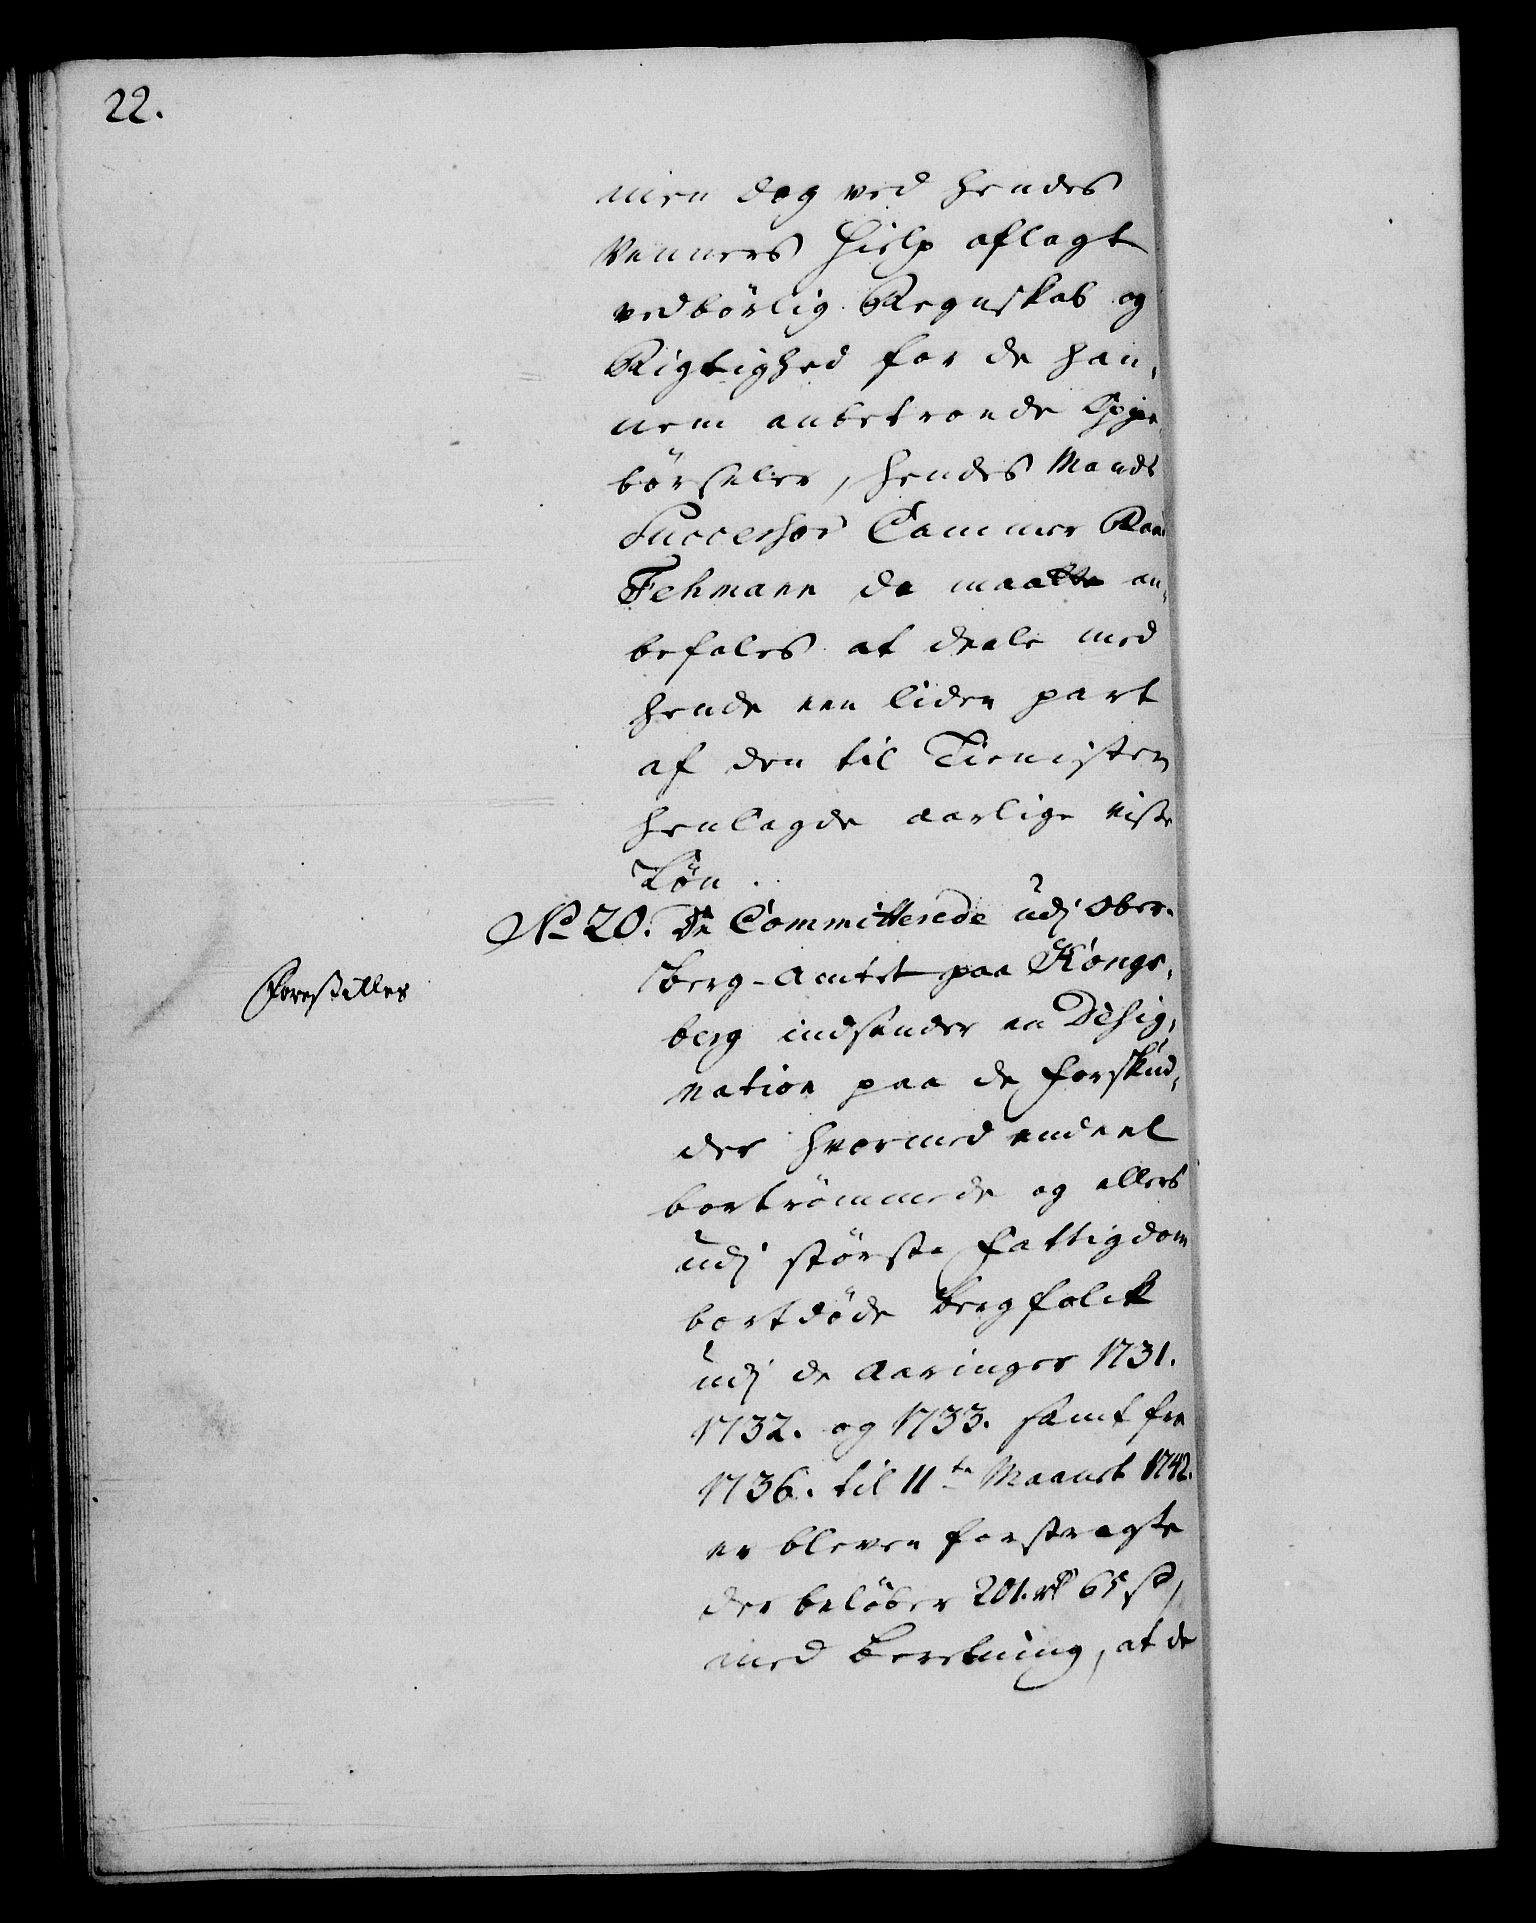 22.
men dog ved hendes
Venners Hielp aflagt
vedbörlig Regnskab og
Rigtighed for de han,
nem anbetroede Oppe,
börseler, hendes Mands
Successor Cammer Raad
Fehmann da maatte an,
befales at deele med
hende een liden part
af den til Tienisten
henlagde aarlige visse
Lön.
No 20. De Committerede udj Ober-
berg-Amtet paa Kongs,
berg indsender en Desig,
nation paa de Forskud,
der hvormed endeel
bortrömmede og ellers
udj störste Fattigdom
bortdöde Bergfolck
udj de Aaringer 1731.
1732. og 1733. samt fra
1736. til 11te Maanet 1742.
er bleven forstragte
der belöber 201. rd 65 s,
med Beretning, at de
Forestilles